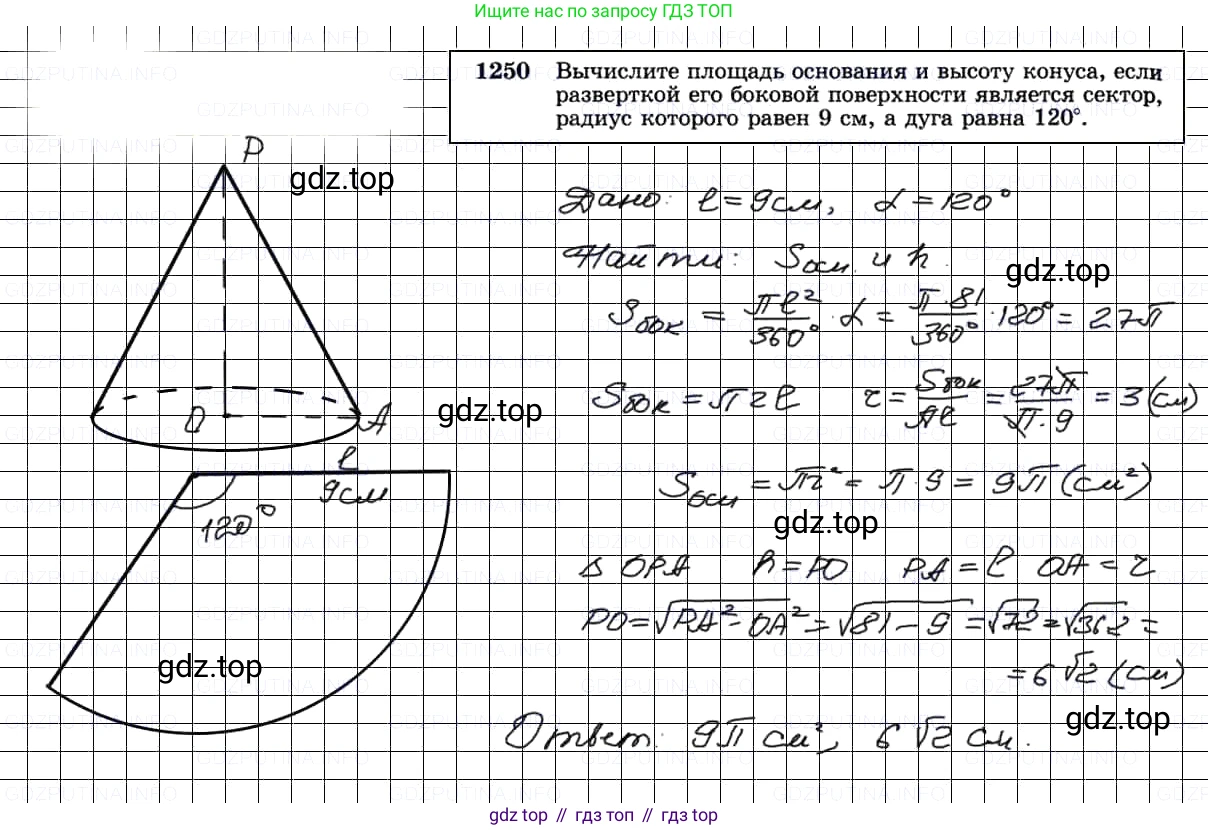 Ищите нас по запросу ГДЗ ТОП
1250 Вычислите площадь основания и высоту конуса, если
разверткой его боковой поверхности является сектор,
радиус которого равен 9 см, а дуга равна 120°.
P
gdz.top
O
A
ℓ
9см
120°
gdz.top
Дано: ℓ = 9см, α = 120°
Найти: Sосн. и h.
gdz.top
Sбок = πℓ²/360° · α = π·81/360° · 120° = 27π
gdz.top
Sбок = πrℓ r = Sбок/πℓ = 27π/π·9 = 3 (см)
Sосн = πr² = π·9 = 9π (см²)
gdz.top
Δ OPA h = PO PA = ℓ OA = r
PO = √PA² - OA² = √81 - 9 = √72 = √36·2 =
= 6√2 (см)
gdz.top
Ответ: 9π см², 6√2 см.
gdz top // гдз топ // гдз top
GDZPUTINA.INFO